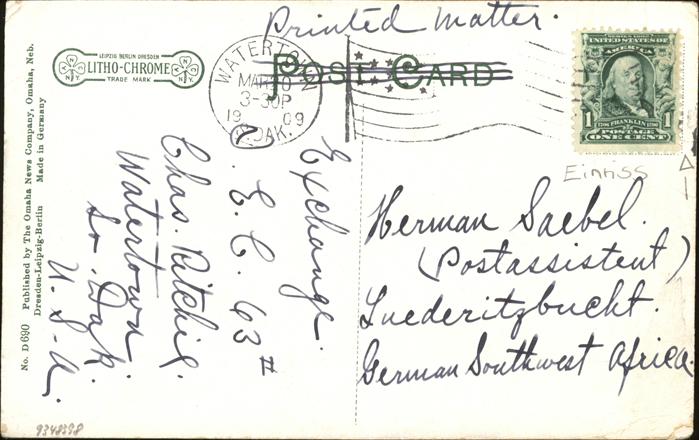 Printed Matter.
LEIPZIG BERLIN DRESDEN
LITHO-CHROME
TRADE MARK
POST CARD
WATERTOWN
MAR 10
3-30P
1909
S.DAK.
SERIES 1902
UNITED STATES OF
AMERICA
1 FRANKLIN 1
POSTAGE
ONE CENT
Einriss
Herman Saebel.
(Postassistent)
Luederitzbucht.
German Southwest Africa.
Exchange.
E. C. 63 II
Chas. Ritchie.
Watertown
So. Dak.
U.S.A.
No. D 690 Published by The Omaha News Company, Omaha, Neb.
Dresden-Leipzig-Berlin Made in Germany
9348398